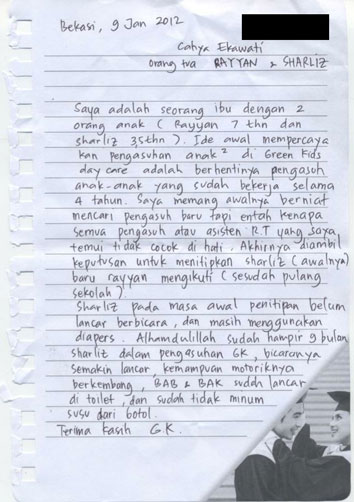 Bekasi, 9 Jan 2012
Cahya Ekawati
Orang tua RAYYAN & SHARLIZ
Saya adalah seorang ibu dengan 2
orang anak (Rayyan 7 thn dan
sharliz 3,5thn). Ide awal mempercaya
kan pengasuhan anak² di Green Kids
day care adalah berhentinya pengasuh
anak-anak yang sudah bekerja selama
4 tahun. Saya memang awalnya berniat
mencari pengasuh baru tapi entah kenapa
semua pengasuh atau asisten R.T yang saya
temui tidak cocok di hati. Akhirnya diambil
keputusan untuk menitipkan sharliz (awalnya)
baru rayyan mengikuti (sesudah pulang
sekolah).
Sharliz pada masa awal penitipan belum
lancar berbicara, dan masih menggunakan
diapers. Alhamdulillah sudah hampir 9 bulan
sharliz dalam pengasuhan GK, bicaranya
semakin lancar, kemampuan motoriknya
berkembang, BAB & BAK sudah lancar
di toilet, dan sudah tidak minum
susu dari botol.
Terima kasih GK.